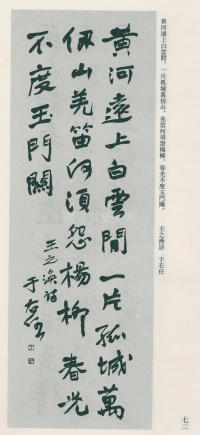 黃河遠上白雲間，一片孤城萬仞山，羌笛何須怨楊柳，春光不度玉門關。　王之渙詩　于右任
黃河遠上白雲間一片孤城萬
仞山羌笛何須怨楊柳春光
不度玉門關
王之渙詩
于右任